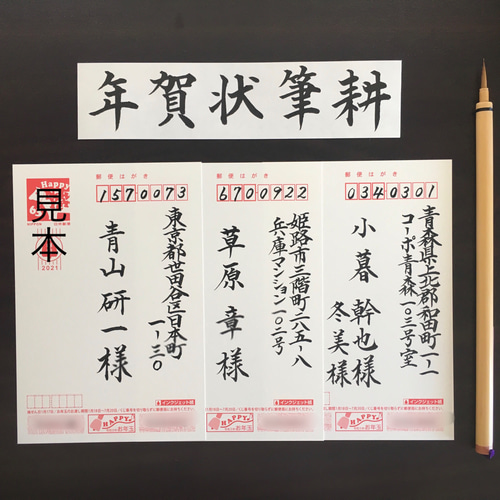 年賀状筆耕
郵便はがき
1570073
東京都世田谷区日本町
一-三〇
青山研一様
見本
HAPPY
NIPPON
2021
インクジェット紙
HAPPY
お年玉
郵便はがき
6700922
姫路市三階町二八五-八
兵庫マンション一〇二号
草原章様
インクジェット紙
HAPPY
お年玉
郵便はがき
0340301
青森県上北郡和田町一-一
コーポ青森一〇三号室
小暮幹也様
冬美様
インクジェット紙
HAPPY
お年玉